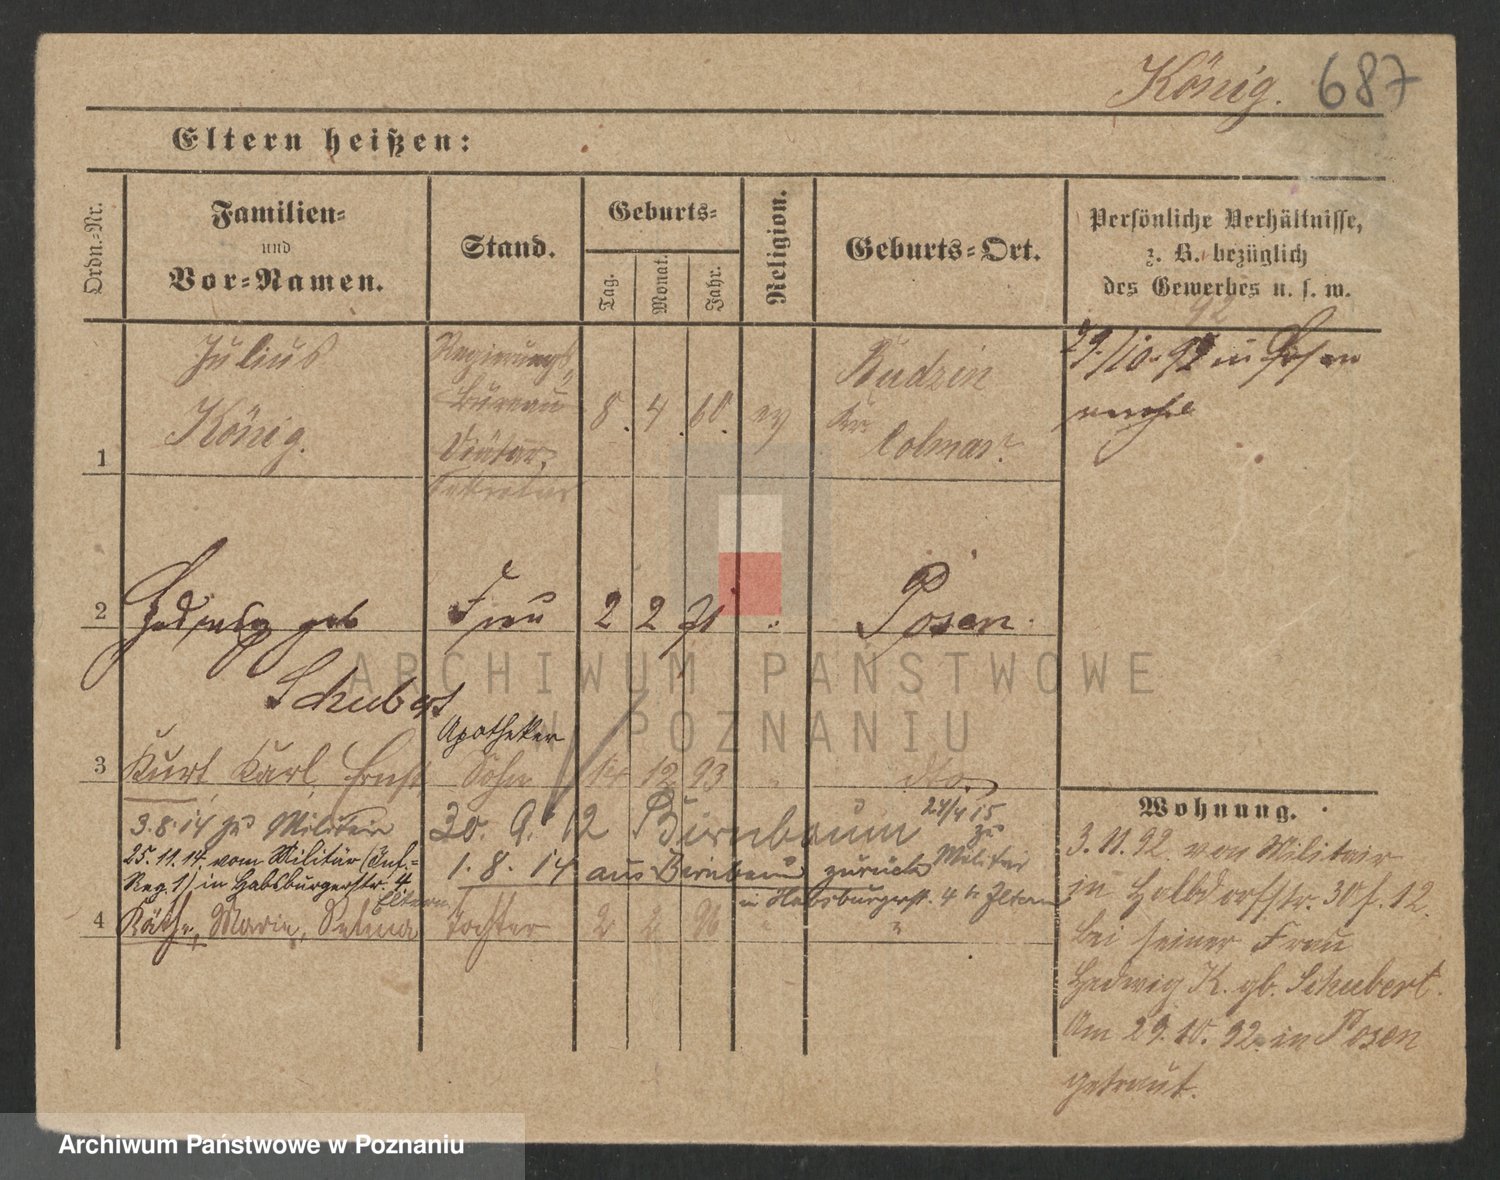 König. 687
Eltern heißen:
Ordn.-Nr.
Familien-
und
Vor-Namen.
Stand.
Geburts-
Tag.
Monat.
Jahr.
Religion.
Geburts-Ort.
Persönliche Verhältnisse,
z. B. bezüglich
des Gewerbes u. s. w.
92
1
Julius
König.
Regierungs
Bureau
Diätar,
Sekretär
8. 4. 60. ev
Budzin
Kr. Colmar
29./10. 92 in Posen
2 Hedwig geb Frau 2 2 71 " Posen.
Schubert
Apotheker
3 Kurt Karl, Ernst Sohn 14 12 93 " dto.
3.8.14 zu Militair 30. 9. 12 Birnbaum 24/4 15
zu
Militair
25.11.14 vom Militär (Inf.-
Reg. 1) in Habsburgerstr. 4.
Eltern
1. 8. 14 aus Birnbaum zurück
in Habsburgerst. 4 Eltern
4 Käthe, Marie, Selma Tochter 2 2 96 " "
Wohnung.
3. 11. 92. von Militair
in Halbdorfstr. 30 f. 12.
bei seiner Frau
Hedwig K. gb. Schubert.
Am 29. 10. 92. in Posen
getraut.
ARCHIWUM PAŃSTWOWE
W POZNANIU
Archiwum Państwowe w Poznaniu